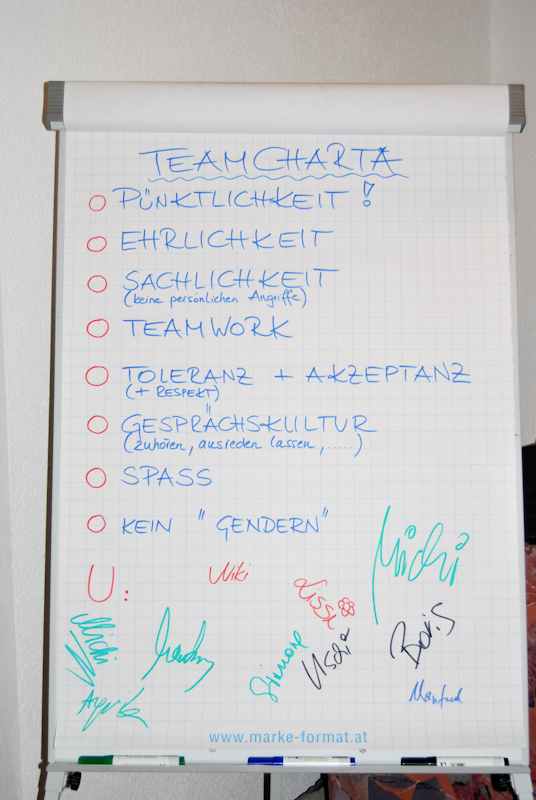 TEAMCHARTA
PÜNKTLICHKEIT !
EHRLICHKEIT
SACHLICHKEIT
(keine persönlichen Angriffe)
TEAMWORK
TOLERANZ + AKZEPTANZ
(+ RESPEKT)
GESPRÄCHSKULTUR
(zuhören, ausreden lassen, .....)
SPASS
KEIN "GENDERN"
Michi
U.:
Wiki
Lissi
Michi
Simone
Uschi
Boris
Manfred
www.marke-format.at